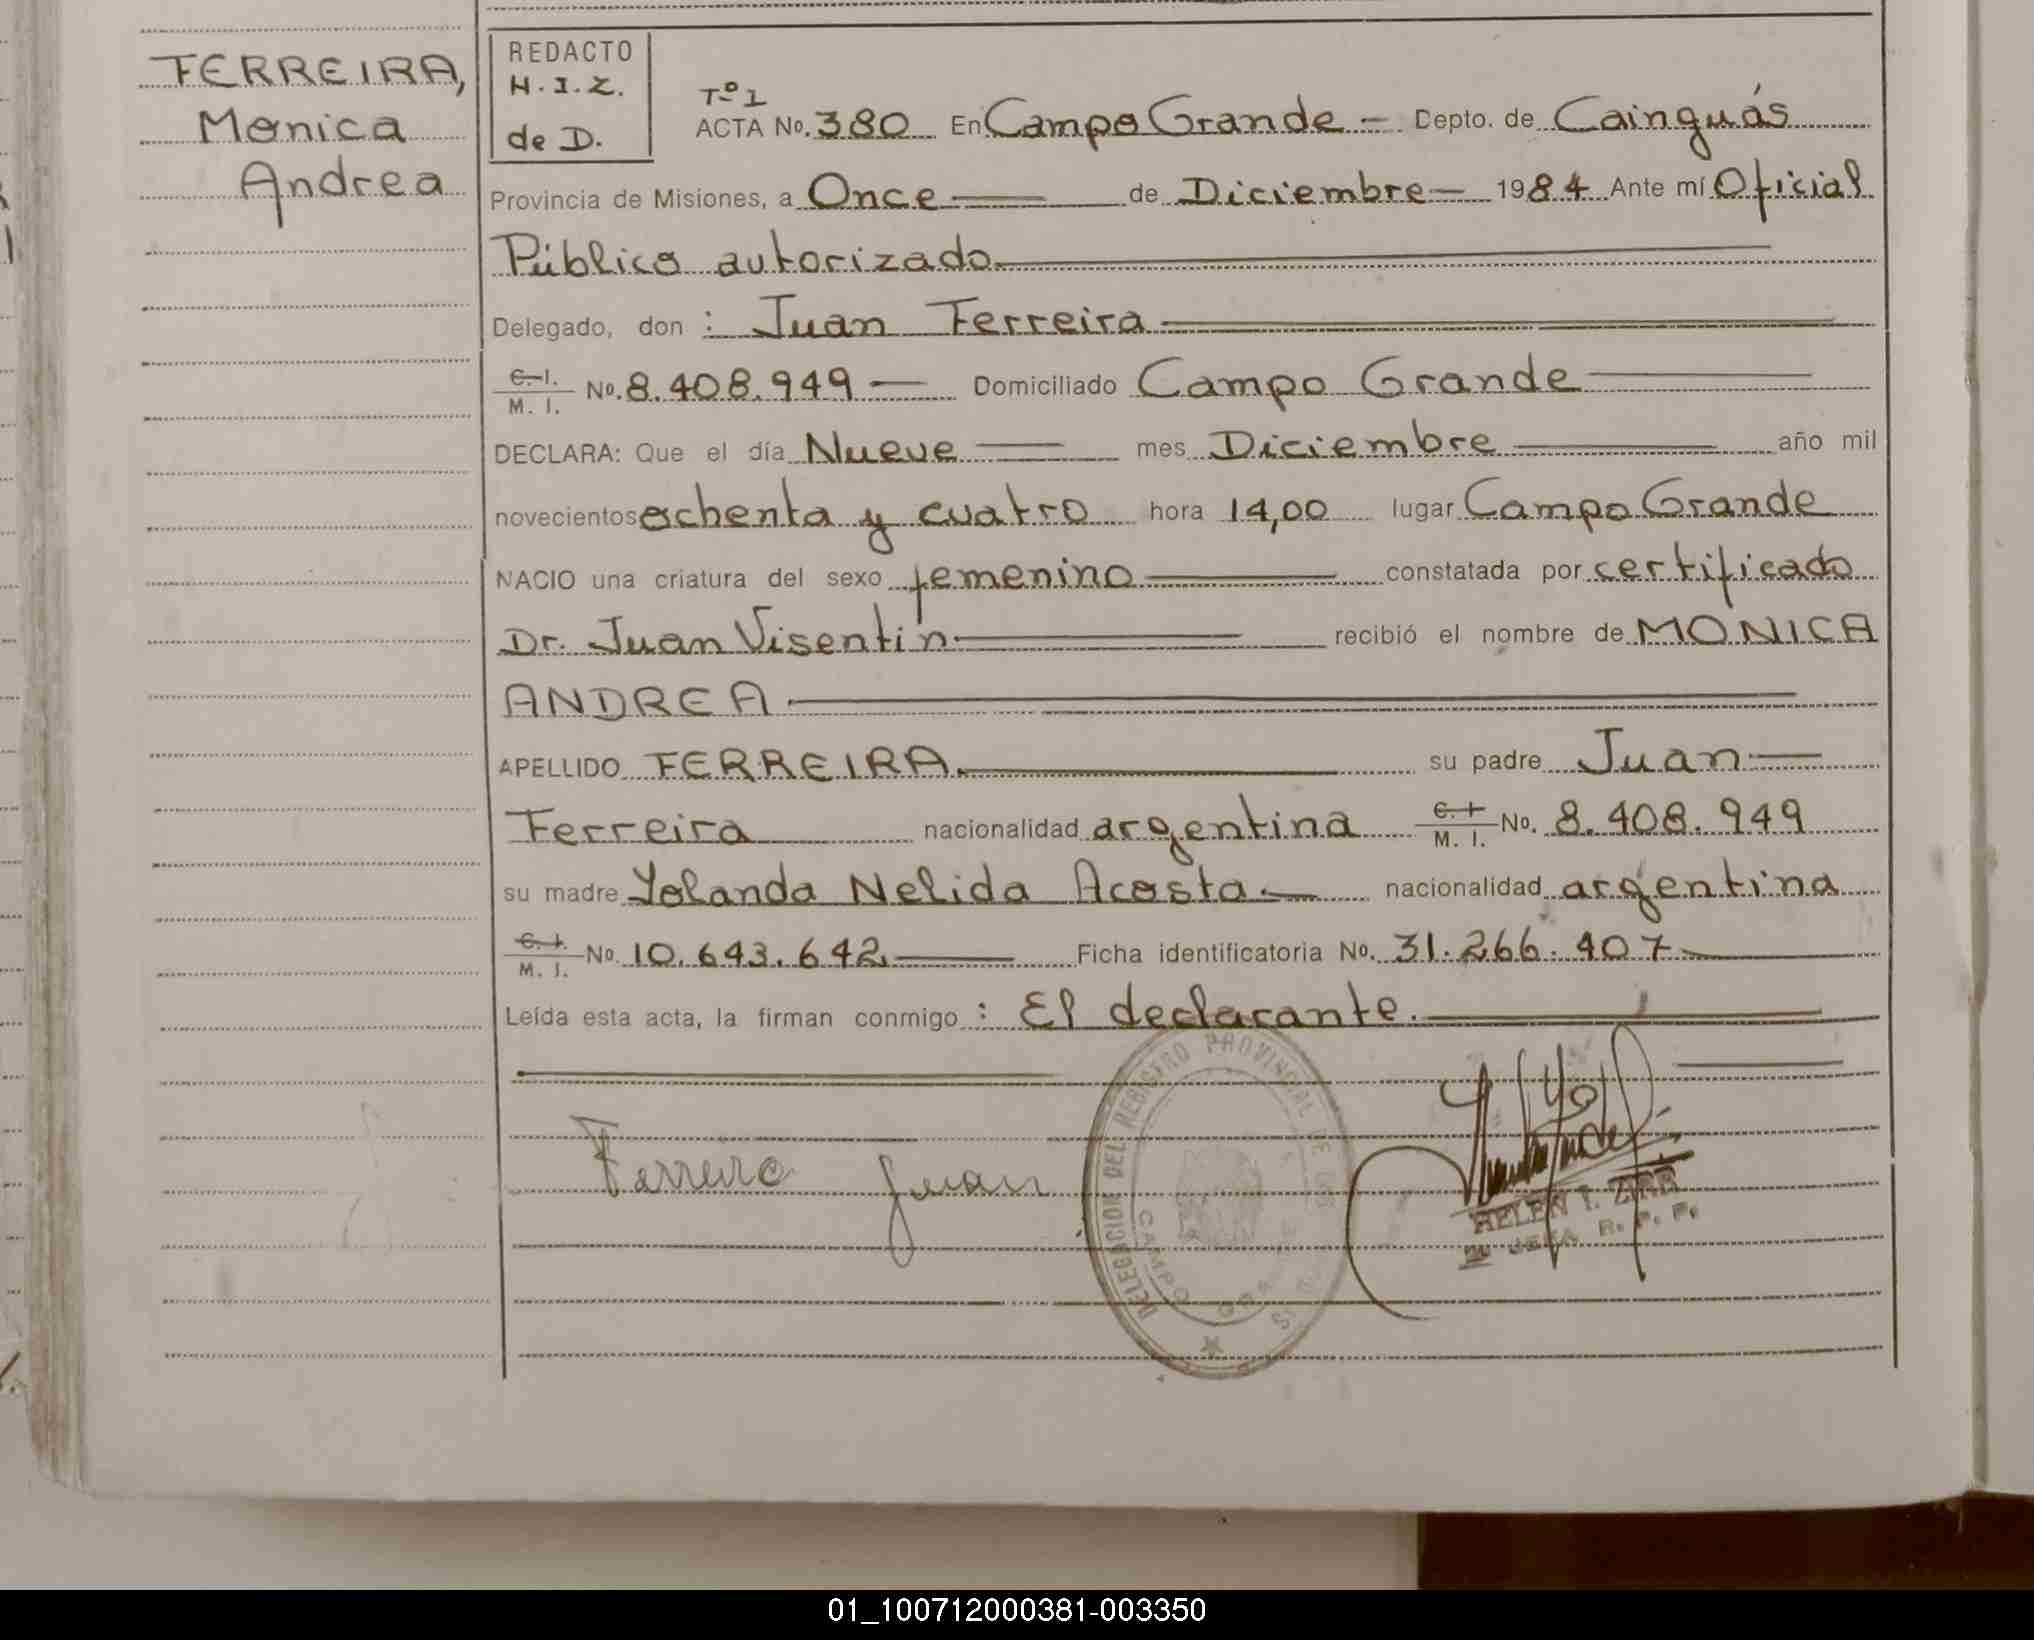 FERREIRA,
Monica
Andrea
REDACTO
H. I. Z.
de D.
Tº 1
ACTA No. 380 En Campo Grande - Depto. de Cainguás
Provincia de Misiones, a Once de Diciembre 1984 Ante mí Oficial
Público autorizado
Delegado, don : Juan Ferreira
C. I.
M. I. No. 8.408.949 Domiciliado Campo Grande
DECLARA: Que el día Nueve mes Diciembre año mil
novecientos ochenta y cuatro hora 14,00 lugar Campo Grande
NACIO una criatura del sexo femenino constatada por certificado
Dr. Juan Visentin recibió el nombre de MONICA
ANDREA
APELLIDO FERREIRA su padre Juan
Ferreira nacionalidad argentina C. I. M. I. No. 8.408.949
su madre Yolanda Nelida Acosta nacionalidad argentina
C. I.
M. I. No. 10.643.642 Ficha identificatoria No. 31.266.407
Leída esta acta, la firman conmigo : El declarante.
Ferreira Juan
DELEGACION DEL REGISTRO PROVINCIAL DE LAS
CAMPO GRANDE
HELEN I.
JEFA R. P. P.
01_100712000381-003350